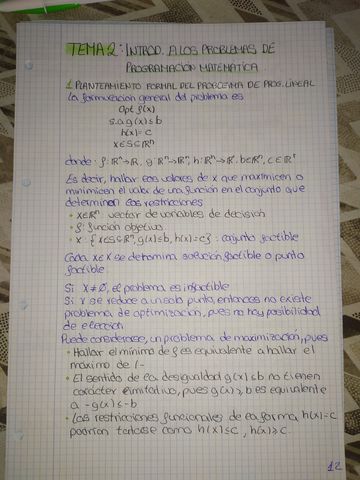 TEMA 2: INTROD. A LOS PROBLEMAS DE
PROGRAMACIÓN MATEMÁTICA
1. PLANTEAMIENTO FORMAL DEL PROBLEMA DE PROG. LINEAL
La formulación general del problema es
Opt f(x)
s.a g(x) ≤ b
h(x) = c
x ∈ S ⊆ ℝⁿ
donde: f: ℝⁿ → ℝ, g: ℝⁿ → ℝᵐ, h: ℝⁿ → ℝʳ, b ∈ ℝᵐ, c ∈ ℝʳ
Es decir, hallar los valores de x que maximicen o
minimicen el valor de una función en el conjunto que
determinen las restricciones
• x ∈ ℝⁿ vector de variables de decisión
• f: función objetivo
• X: {x ∈ S ⊆ ℝⁿ, g(x) ≤ b, h(x) = c} : conjunto factible
Cada x ∈ X se denomina solución factible o punto
factible.
Si X ≠ ∅, el problema es infactible
Si X se reduce a un solo punto, entonces no existe
problema de optimización, pues no hay posibilidad
de elección
Puede considerarse, un problema de maximización, pues
• Hallar el mínimo de f es equivalente a hallar el
máximo de (-
• El sentido de la desigualdad g(x) ≤ b no tienen
carácter limitativo, pues g(x) ≥ b es equivalente
a -g(x) ≤ -b
• Las restricciones funcionales de la forma h(x) = c
podrían tomarse como h(x) ≤ c, h(x) ≥ c.
12